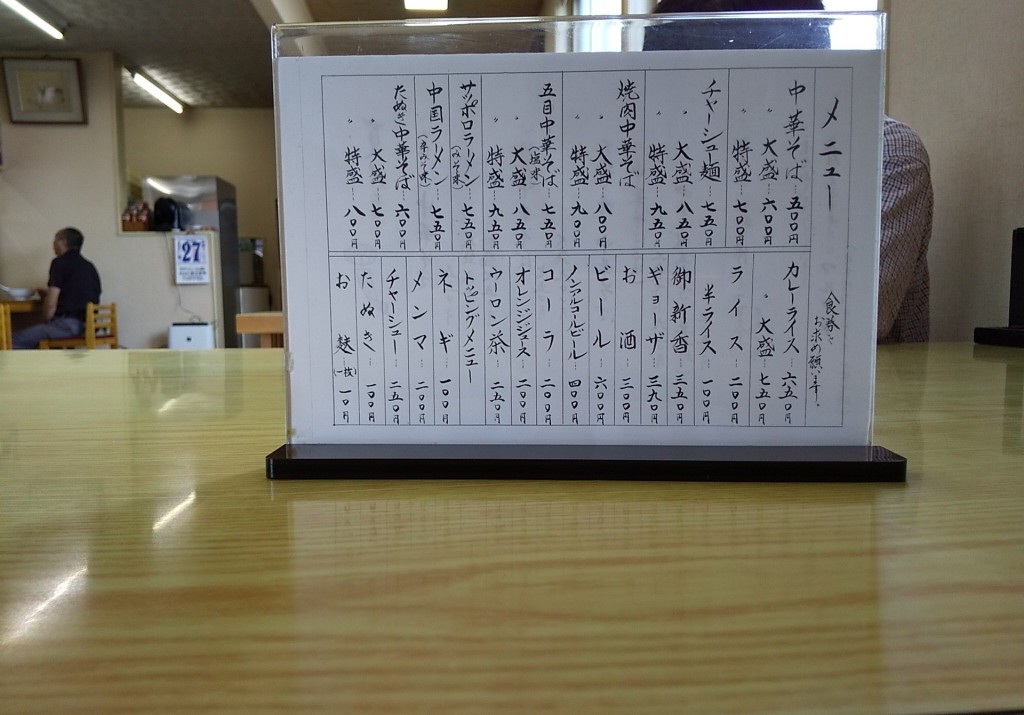 メニュー
食券をお求め願います。
中華そば…五〇〇円
〃 大盛…六〇〇円
〃 特盛…七〇〇円
チャーシュー麺…七五〇円
〃 大盛…八五〇円
〃 特盛…九五〇円
焼肉中華そば
〃 大盛…八〇〇円
〃 特盛…九〇〇円
五目中華そば(塩味)…七五〇円
〃 大盛…八五〇円
〃 特盛…九五〇円
サッポロラーメン(みそ味)…七五〇円
中国ラーメン(辛みそ味)…七五〇円
たぬき中華そば…六〇〇円
〃 大盛…七〇〇円
〃 特盛…八〇〇円
カレーライス…六五〇円
〃 大盛…七五〇円
ライス…二〇〇円
半ライス…一〇〇円
御新香…三五〇円
ギョーザ…三九〇円
お酒…三〇〇円
ビール…六〇〇円
ノンアルコールビール…四〇〇円
コーラ…二〇〇円
オレンジジュース…二〇〇円
ウーロン茶…二五〇円
トッピングメニュー
ネギ…一〇〇円
メンマ…二〇〇円
チャーシュー…二五〇円
たぬき…一〇〇円
お麩(一枚)…一〇円
27